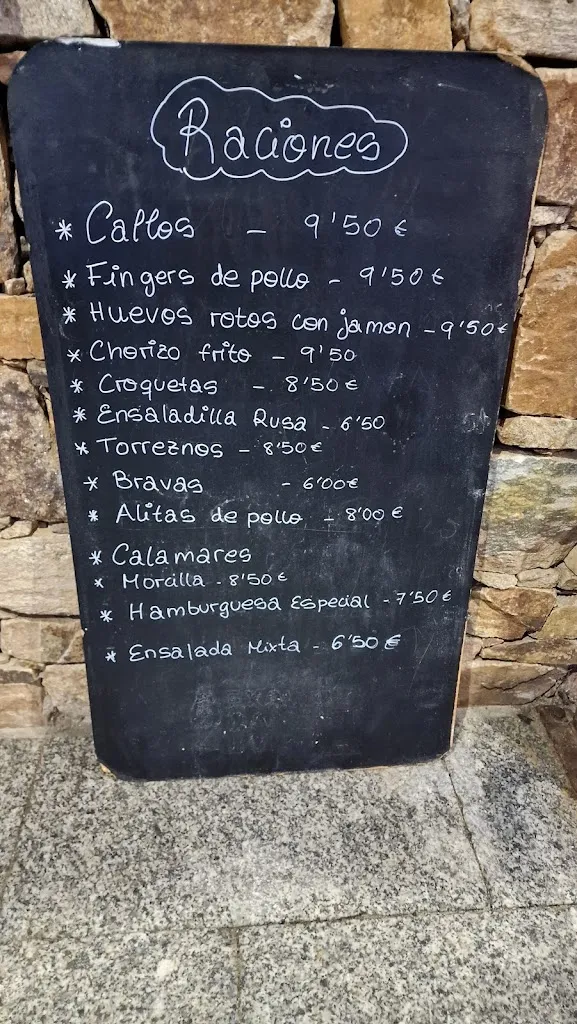 Raciones
* Callos - 9'50 €
* Fingers de pollo - 9'50 €
* Huevos rotos con jamon - 9'50 €
* Chorizo frito - 9'50
* Croquetas - 8'50 €
* Ensaladilla Rusa - 6'50
* Torreznos - 8'50 €
* Bravas - 6'00 €
* Alitas de pollo - 8'00 €
* Calamares
* Morcilla - 8'50 €
* Hamburguesa Especial - 7'50 €
* Ensalada Mixta - 6'50 €